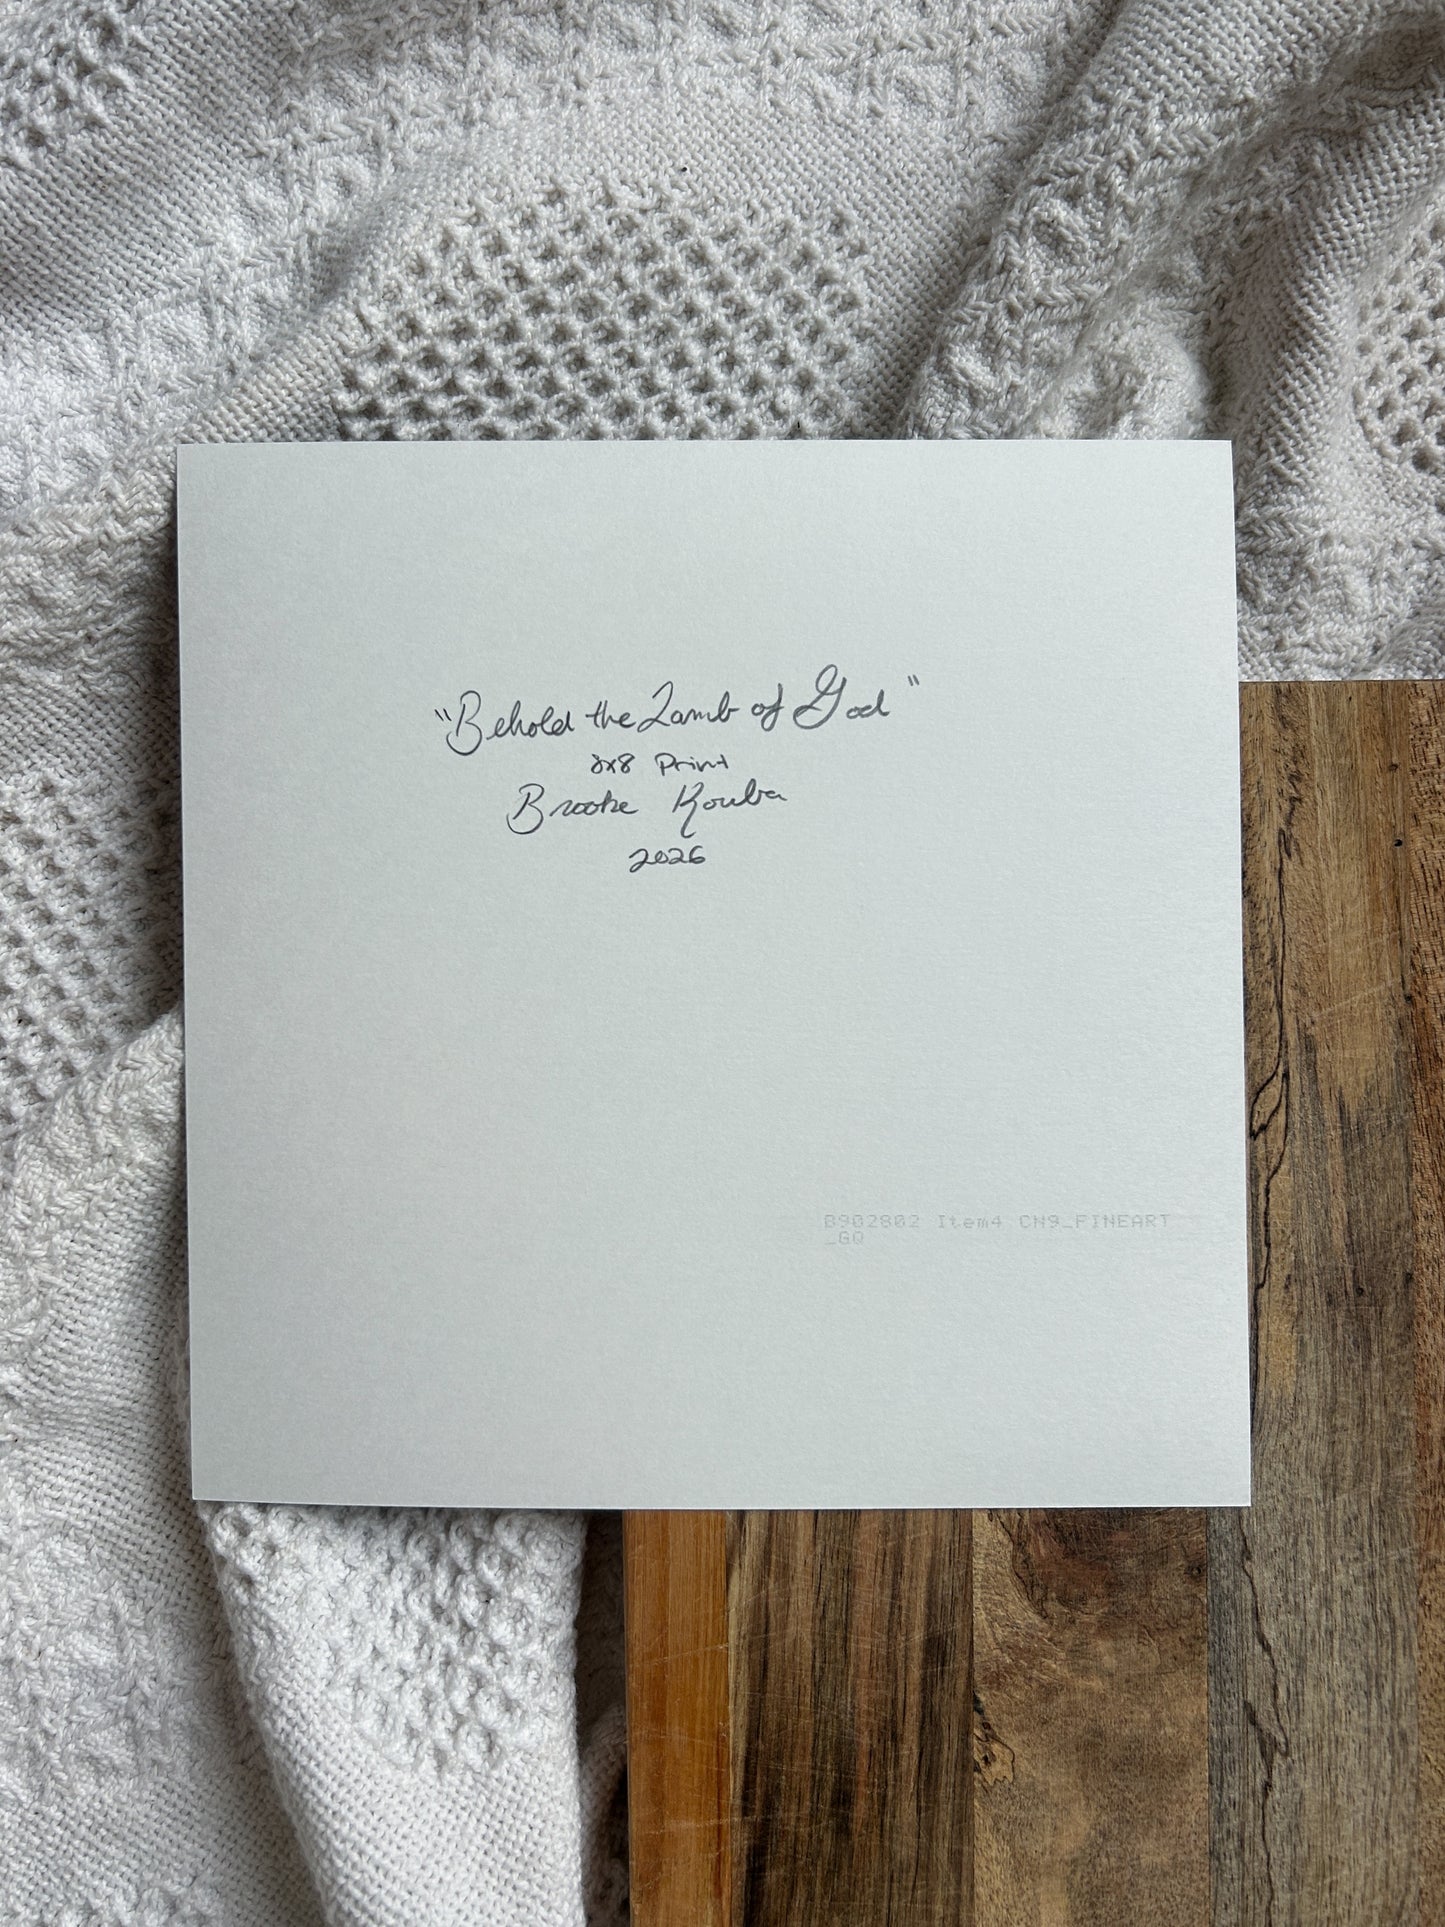 "Behold the Lamb of God"
8x8 Print
Brooke Kouba
2026
B902802 Item4 CN9_FINEART
_GQ